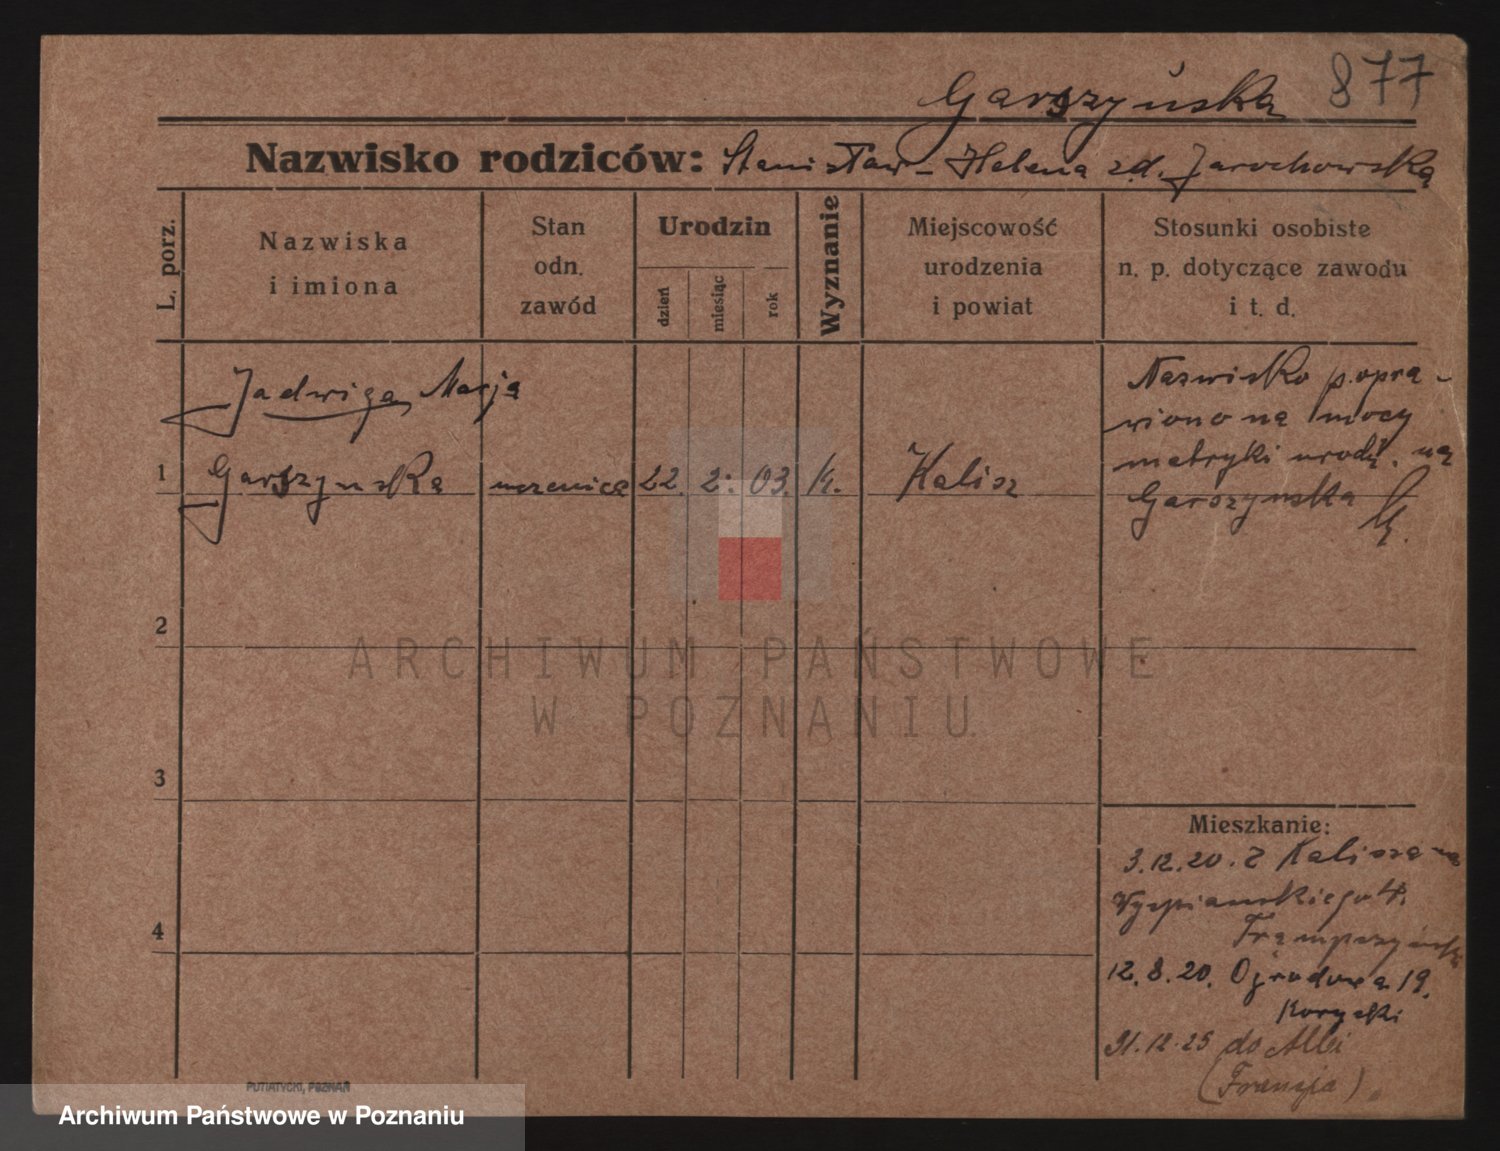 Garszyńska 877
Nazwisko rodziców: Stanisław - Helena zd. Jarochowska
L. porz.
Nazwiska
i imiona
Stan
odn.
zawód
Urodzin
dzień
miesiąc
rok
Wyznanie
Miejscowość
urodzenia
i powiat
Stosunki osobiste
n. p. dotyczące zawodu
i t. d.
Jadwiga Marja
1 Garszynska uczenica 22. 2. 03. k. Kalisz
Nazwisko popra-
wiono na mocy
metryki urodz. na
Garszynska
2
3
4
Mieszkanie:
3.12.20. z Kalisza na
Wyspianskiego 4.
Trąmpczyński
12.8.20. Ogrodowa 19.
31.12.25 do Albi
(Francja)
ARCHIWUM PAŃSTWOWE
W POZNANIU
PUTIATYCKI, POZNAŃ
Archiwum Państwowe w Poznaniu